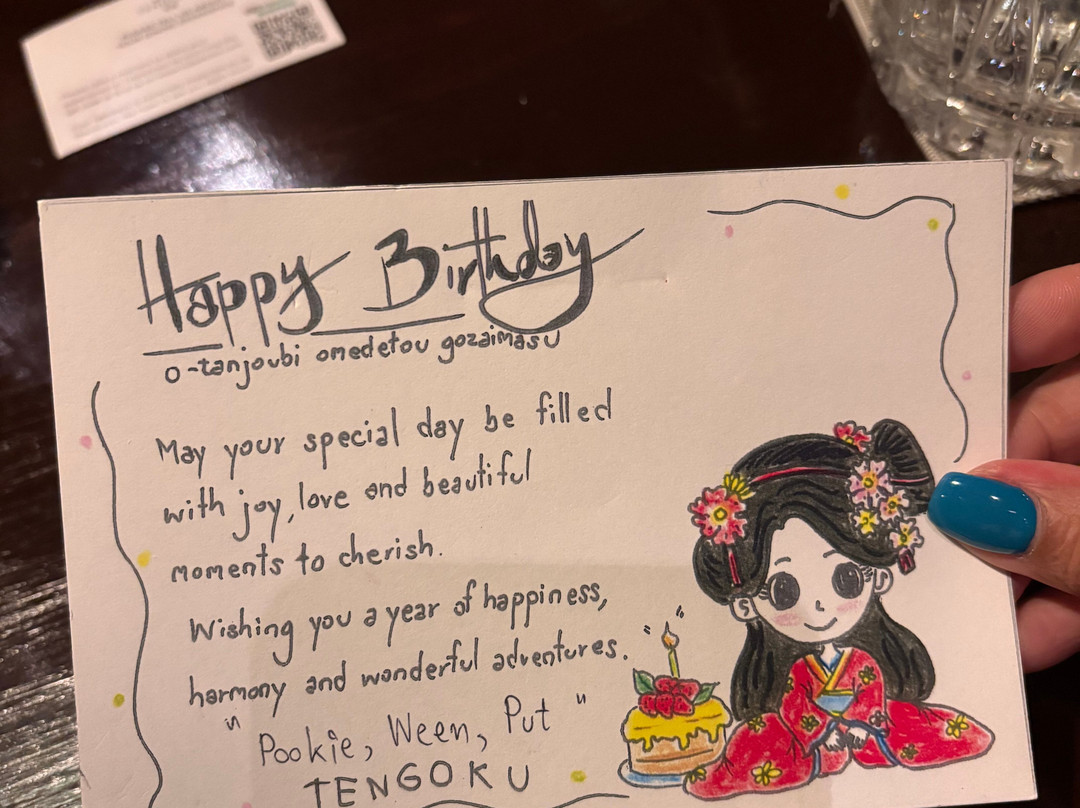 Happy Birthday
o-tanjoubi omedetou gozaimasu
May your special day be filled
with joy, love and beautiful
moments to cherish.
Wishing you a year of happiness,
harmony and wonderful adventures.
" Pookie, Ween, Put "
TENGOKU